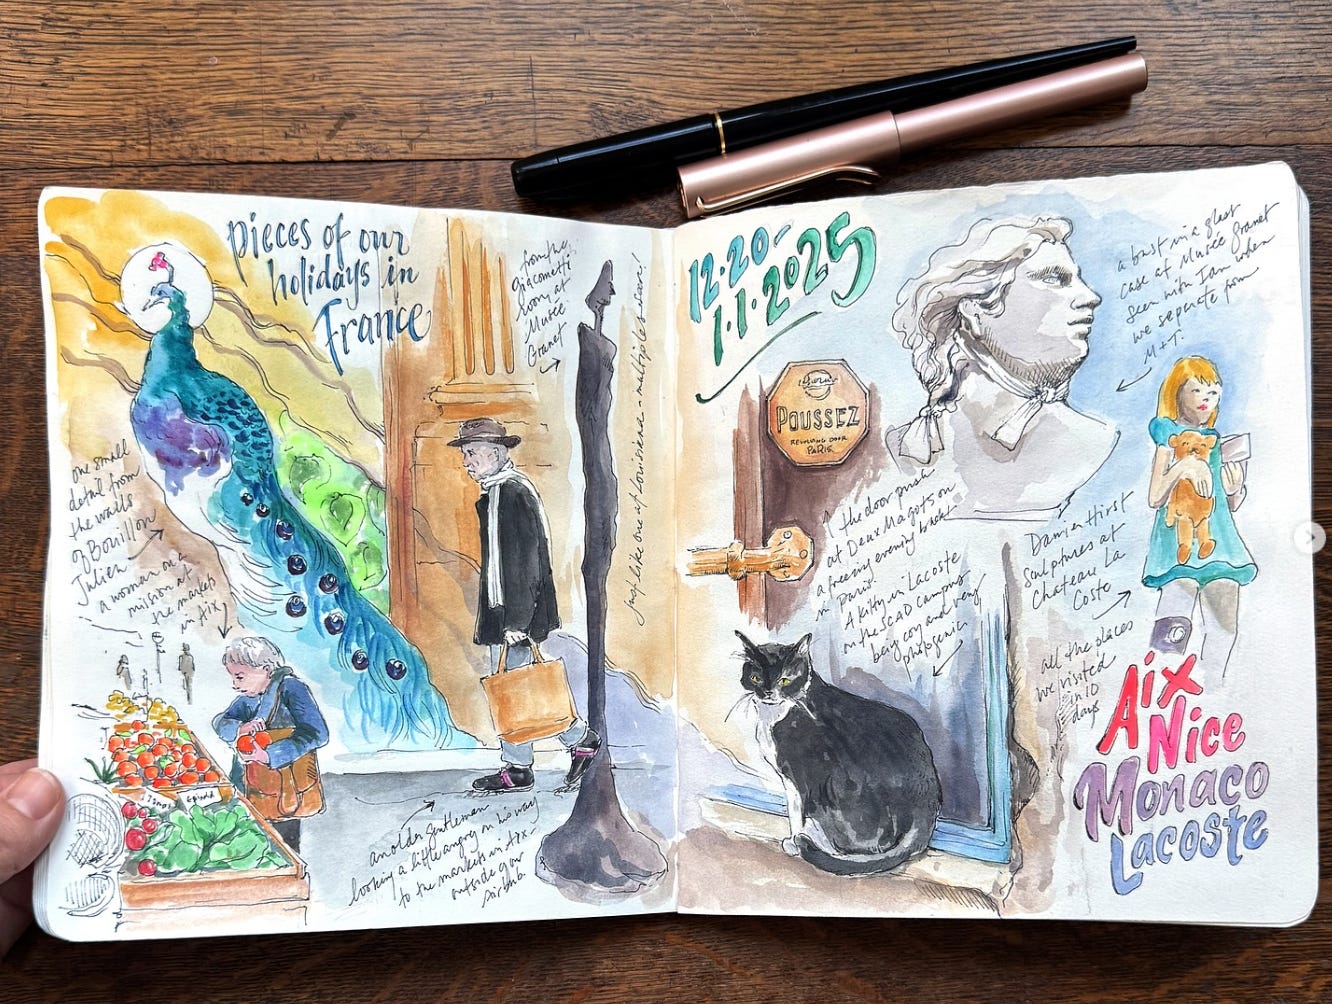 pieces of our
holidays in
France
from the
Giacometti
room at
Musée
Granet
just like one at Louisiana - multiple
one small
detail from
the walls
of Bouillon
Julien
a woman on a
mission at
the markets
in Aix
Epinard
an older gentleman
looking a little angry on his way
to the markets in Aix -
outside of our
Airbnb.
12.20-
1.1.2025
POUSSEZ
REVOLVING DOOR
PARIS
the door push
at Deux Magots on
a freezing evening
in Paris
A kitty in Lacoste
on the SCAD campus
being coy and very
photogenic
a bust in a glass
case at Musée Granet
seen with Ian when
we separate from
M + T.
Damien Hirst
sculptures at
Chateau La
Coste
all the places
we visited
in 10
days
Aix
Nice
Monaco
Lacoste